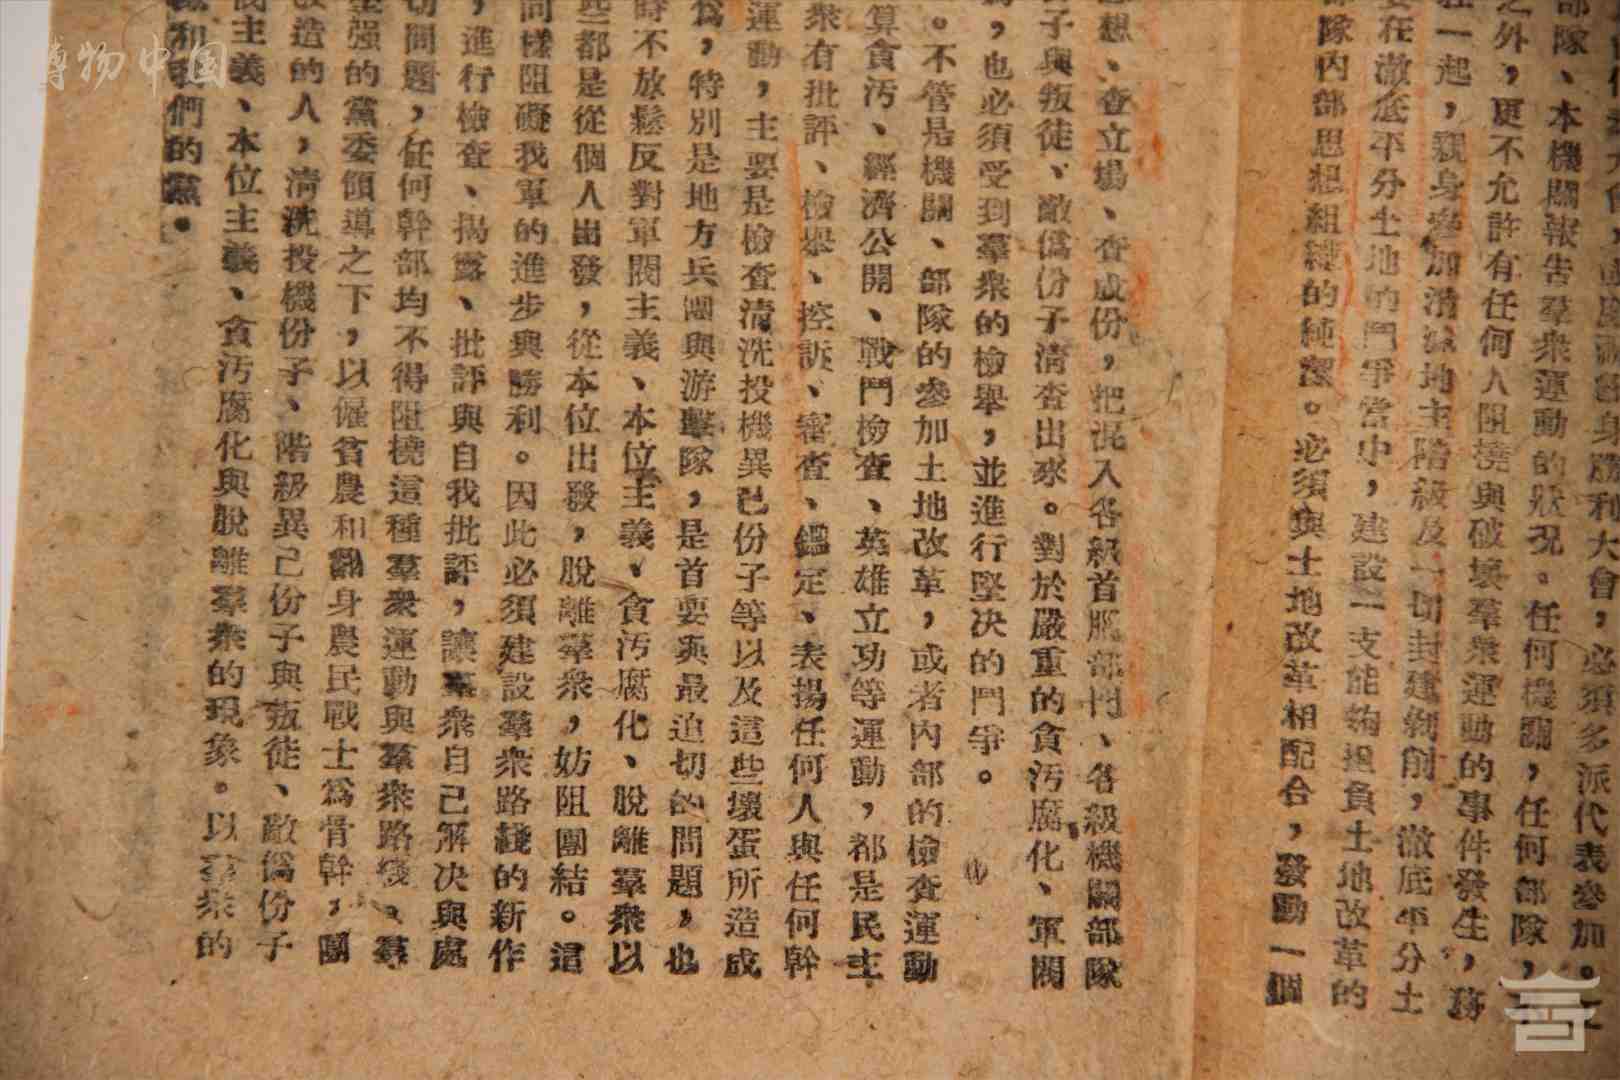 部隊、本機關報告羣衆運動的狀况。任何機關，任何部隊，
之外，更不允許有任何人阻撓與破壞羣衆運動的事件發生，務
在一起，親身參加消滅地主階級及一切封建剝削，澈底平分土
要在澈底平分土地的鬥爭當中，建設一支能夠担負土地改革的
部隊內部思想組織的純潔。必須與土地改革相配合，發動一個
思想、查立場、查成份，把混入各級首腦部門、各級機關部隊
份子與叛徒、敵僞份子清查出來。對於嚴重的貪汚腐化、軍閥
，也必須受到羣衆的檢舉，並進行堅决的鬥爭。
。不管是機關、部隊的參加土地改革，或者內部的檢查運動
算貪汚、經濟公開、戰鬥檢查、英雄立功等運動，都是民主
衆有批評、檢舉、控訴、審查、鑑定、表揚任何人與任何幹
運動，主要是檢查清洗投機異己份子等以及這些壞蛋所造成
爲，特別是地方兵團與游擊隊，是首要與最迫切的問題，也
時不放鬆反對軍閥主義、本位主義、貪汚腐化、脫離羣衆以
些都是從個人出發，從本位出發，脫離羣衆，妨阻團結。這
同樣阻礙我軍的進步與勝利。因此必須建設羣衆路綫的新作
，進行檢查、揭露、批評與自我批評，讓羣衆自己解决與處
切問題，任何幹部均不得阻撓這種羣衆運動與羣衆路綫。羣
堅强的黨委領導之下，以僱貧農和翻身農民戰士爲骨幹，團
改造的人，清洗投機份子、階級異己份子與叛徒、敵僞份子
閥主義、本位主義、貪汚腐化與脫離羣衆的現象。以羣衆的
和我們的黨。
博物中国